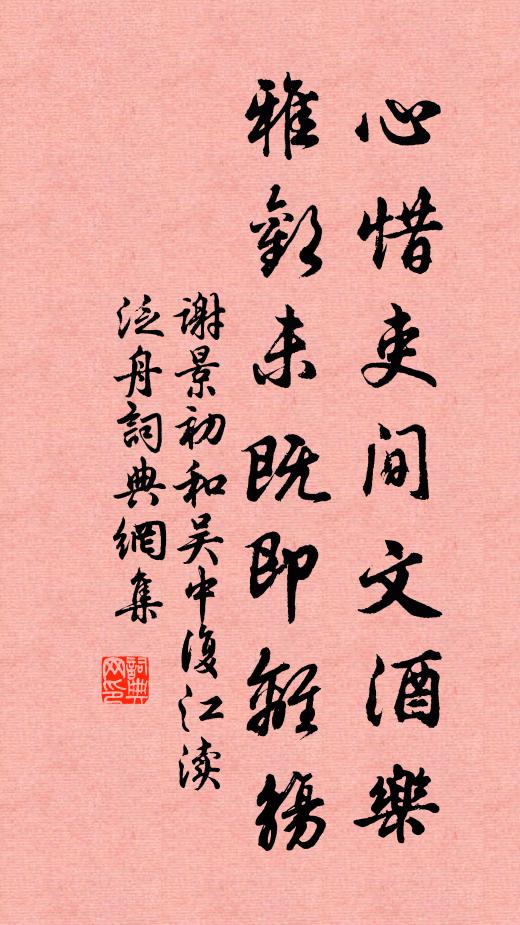 心惜吏閒文酒樂
雅歡未既即離觴
谢景初和吴中復江渎
泛舟詞典網集
詞典网印